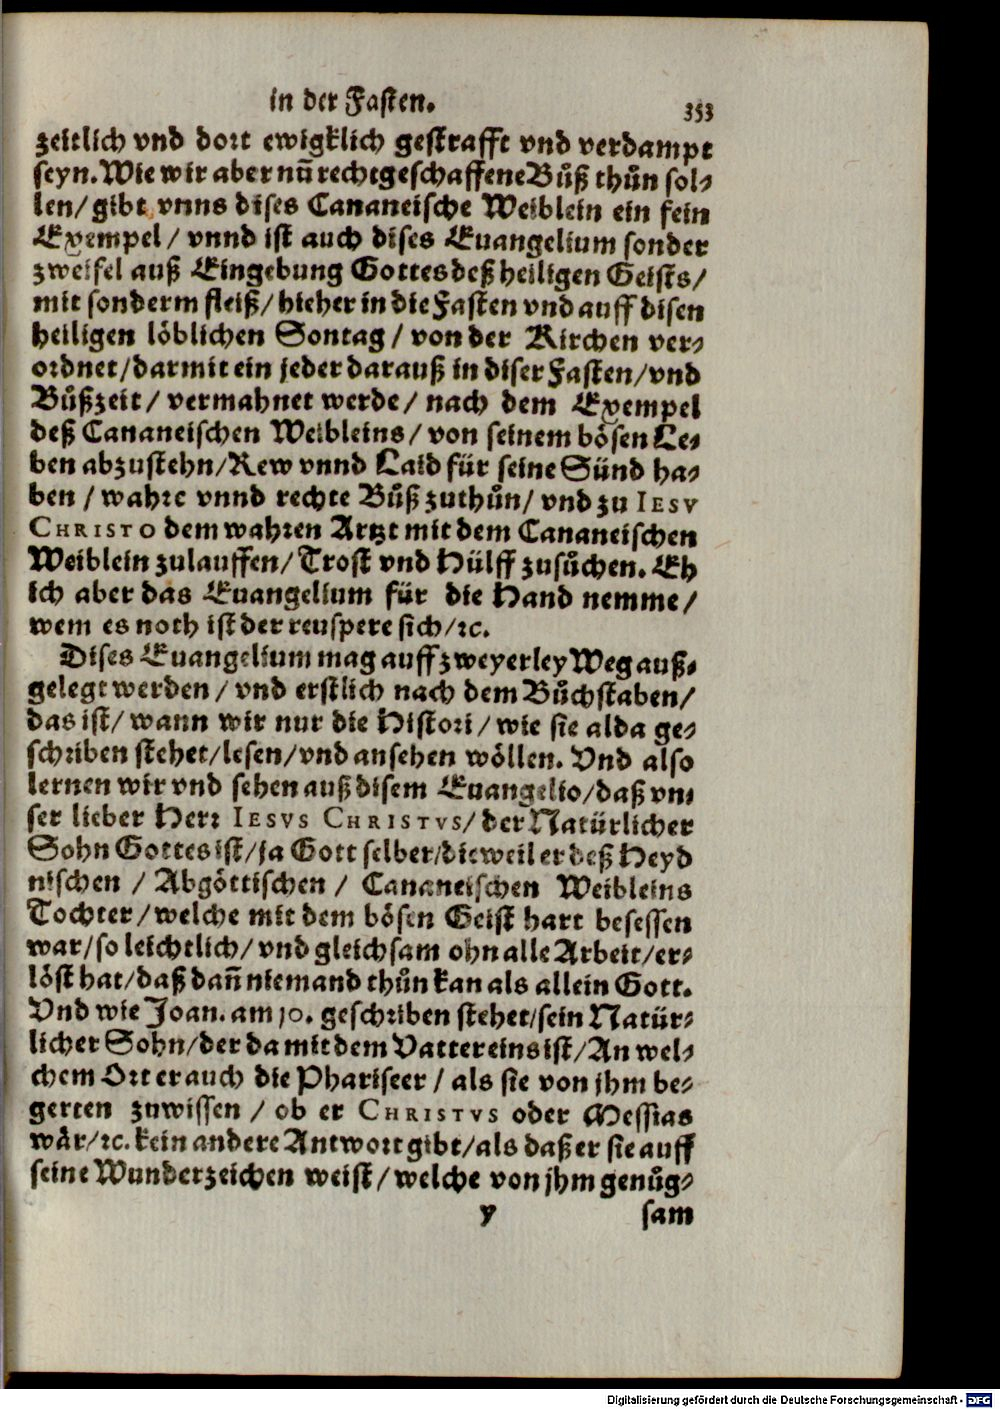 in der Fasten.
353
zeitlich vnd dort ewigklich gestrafft vnd verdampt
seyn. Wie wir aber nun̄ rechtgeschaffene Bůß thůn sol⸗
len/ gibt vnns dises Cananeische Weiblein ein fein
Exempel/ vnnd ist auch dises Euangelium sonder
zweifel auß Eingebung Gottes deß heiligen Geists/
mit sonderm fleiß/ hieher in die Fasten vnd auff disen
heiligen löblichen Sontag/ von der Kirchen ver⸗
ordnet/ darmit ein jeder darauß in diser Fasten/ vnd
Bůßzeit/ vermahnet werde/ nach dem Exempel
deß Cananeischen Weibleins/ von seinem bösen Le⸗
ben abzustehn/ Rew vnnd Laid für seine Sünd ha⸗
ben/ wahre vnnd rechte Bůß zuthůn/ vnd zu IESV
CHRISTO dem wahren Artzt mit dem Cananeischen
Weiblein zulauffen/ Trost vnd Hülff zusůchen. Eh
ich aber das Euangelium für die Hand nemme/
wem es noth ist der reuspere sich/ ꝛc.
Dises Euangelium mag auff zweyerley Weg auß⸗
gelegt werden/ vnd erstlich nach dem Bůchstaben/
das ist/ wann wir nur die Histori/ wie sie alda ge⸗
schriben stehet/ lesen/ vnd ansehen wöllen. Vnd also
lernen wir vnd sehen auß disem Euangelio/ daß vn⸗
ser lieber Herr IESVS CHRISTVS/ der Natürlicher
Sohn Gottes ist/ ja Gott selber/ dieweil er deß Heyd
nischen/ Abgöttischen/ Cananeischen Weibleins
Tochter/ welche mit dem bösen Geist hart besessen
war/ so leichtlich/ vnd gleichsam ohn alle Arbeit/ er⸗
löst hat/ daß dan̄ niemand thůn kan als allein Gott.
Vnd wie Joan. am 10. geschriben stehet/ sein Natür⸗
licher Sohn/ der da mit dem Vatter eins ist/ An wel⸗
chem Ort er auch die Phariseer/ als sie von jhm be⸗
gerten zuwissen/ ob er CHRISTVS oder Messias
wår/ ꝛc. kein andere Antwort gibt/ als daß er sie auff
seine Wunderzeichen weist/ welche von jhm genůg⸗
y
sam
Digitalisierung gefördert durch die Deutsche Forschungsgemeinschaft - DFG